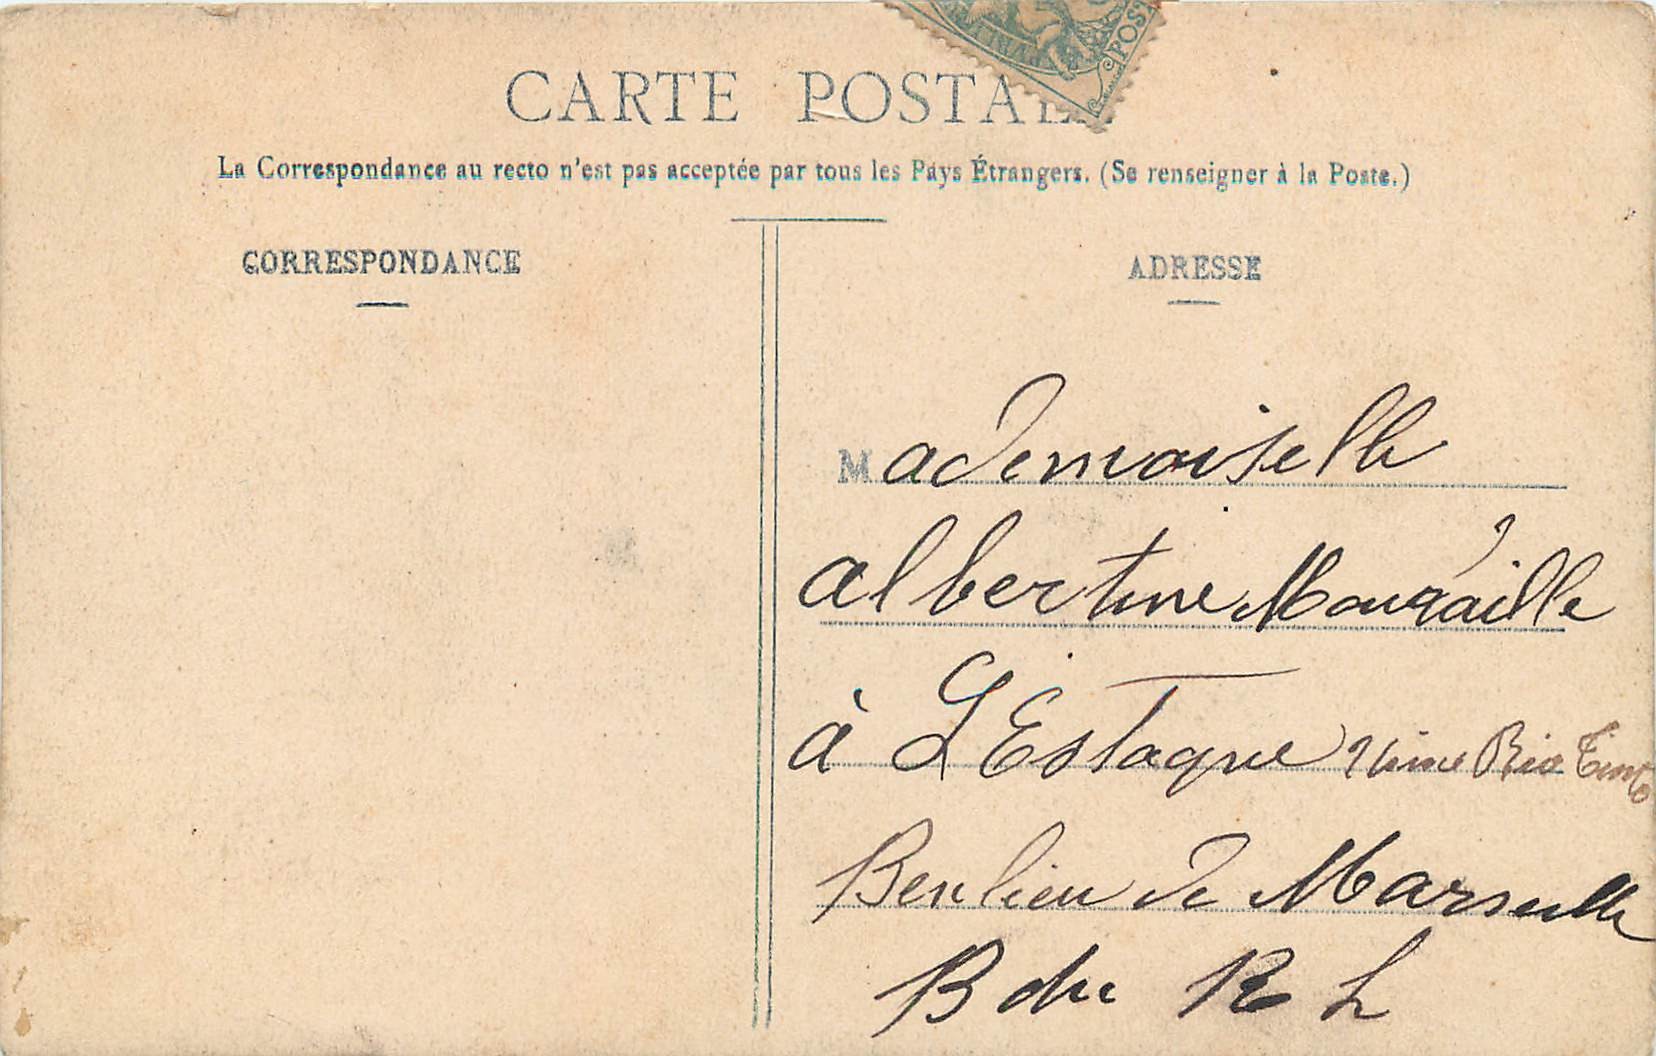 CARTE POSTALE
POST
La Correspondance au recto n'est pas acceptée par tous les Pays Étrangers. (Se renseigner à la Poste.)
CORRESPONDANCE
ADRESSE
Mademoiselle
albertine Mouraille
à L'Estaque Usine Rio Tinto
Benlieu de Marseille
B du R h